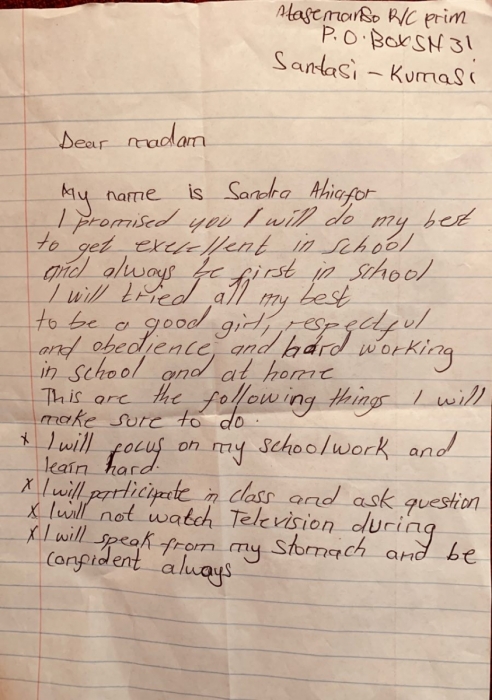 Atasemanso R/C prim
P.O.BOX SN 31
Santasi - Kumasi
Dear madam
My name is Sandra Ahiafor
I promised you I will do my best
to get execellent in school
and always be first in school
I will tried all my best
to be a good girl, respectful
and obedience, and hard working
in school and at home
This are the following things I will
make sure to do.
x I will focus on my schoolwork and
learn hard.
x I will participate in class and ask question
x I will not watch Television during
x I will speak from my Stomach and be
confident always